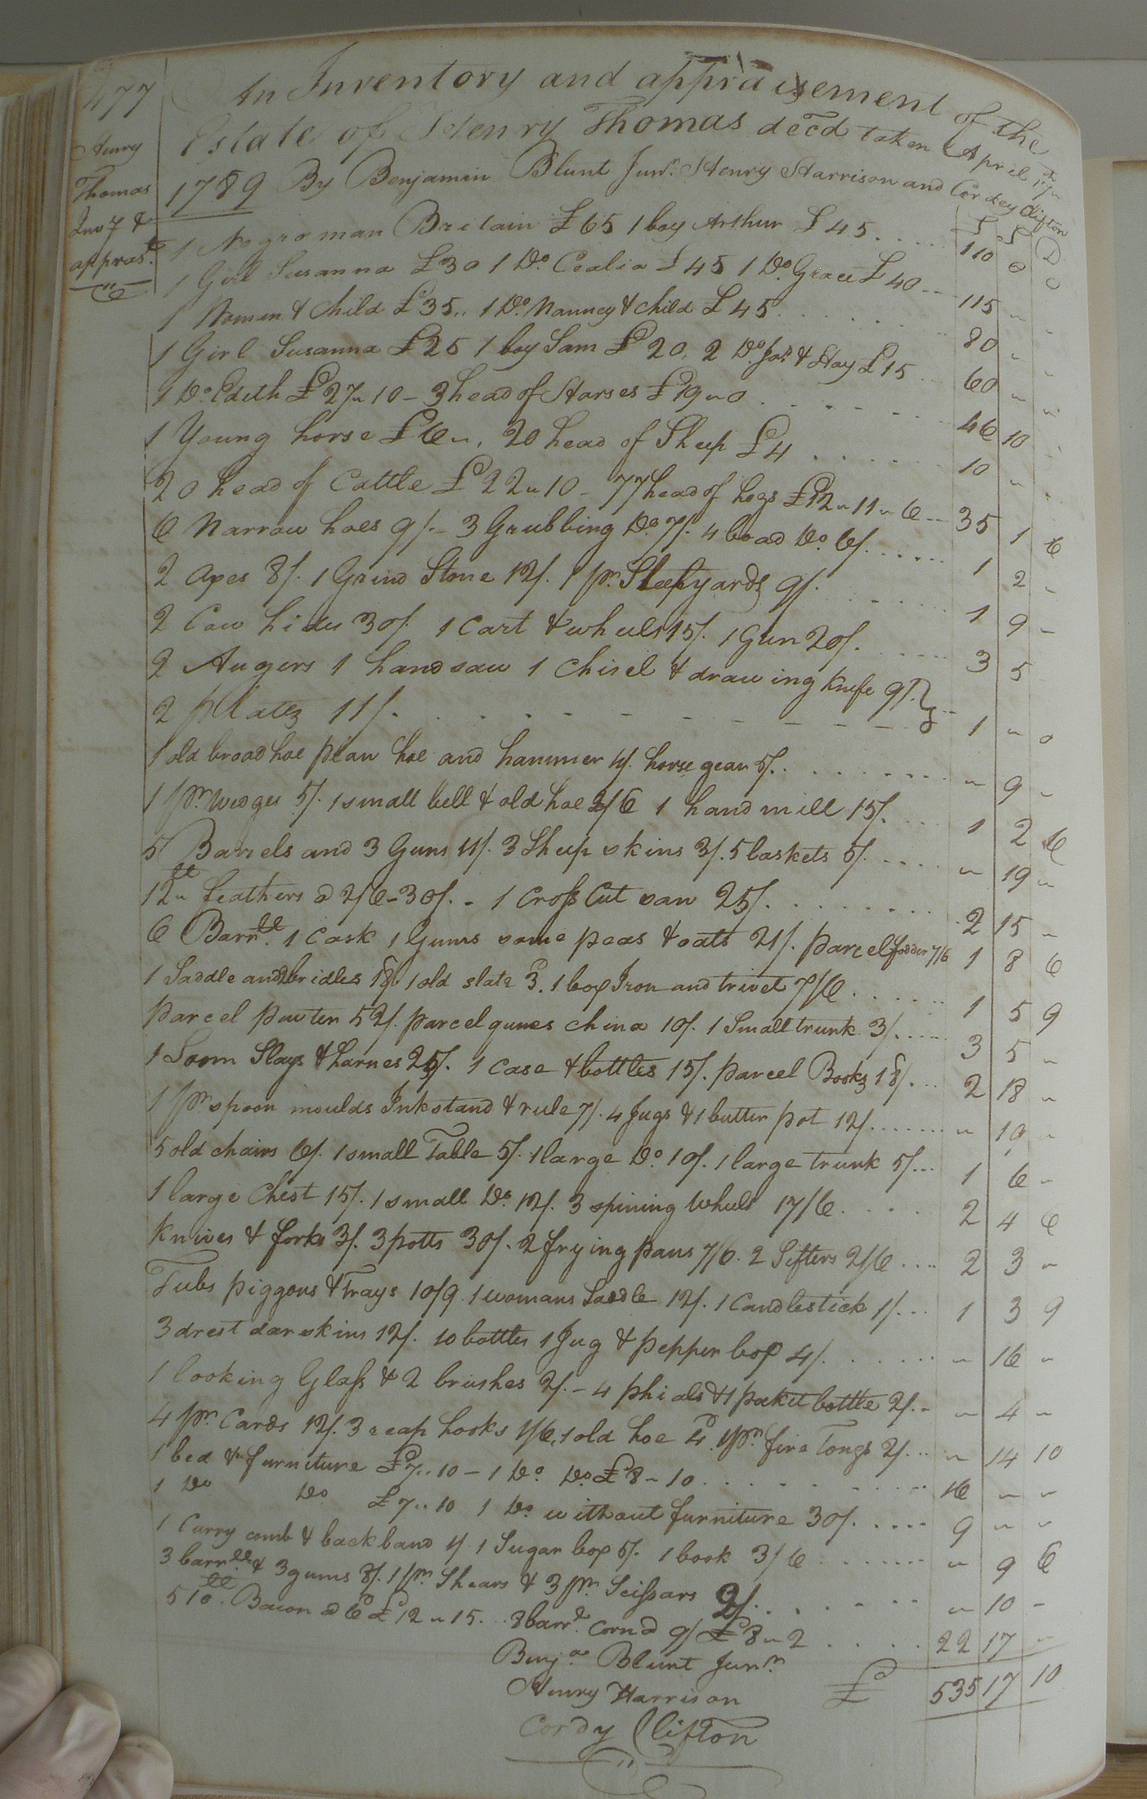 477
An Inventory and appraisement of the
Estate of Henry Thomas decd taken April
1789 By Benjamin Blunt Junr. Henry Harrison and Cordey Clifton
Henry
Thomas
Invy &
apprast.
£ S D
1 Negro man Britain £65 1 boy Arthur £45 .... 110 0 0
1 Girl Susanna £30 1 Do. Cealia £45 1 Do. Grace £40 -- 115 " "
1 Woman & Child £35.. 1 Do. Nanney & child £45 ...... 80 " "
1 Girl Susanna £25 1 boy Sam £20. 2 Do. Jas. & Hay £15 .. 60 " "
1 Do. Edith £27 " 10 - 3 head of Horses £19 " 0 ...... 46 10
1 Young horse £6 ". 20 head of Sheep £4 ..... 10 "
20 head of Cattle £22 " 10 - 77 head of hogs £12 " 11 " 6 -- 35 1 6
6 Narrow hoes 9/. - 3 Grubbing Do. 7/. 4 broad Do. 6/. .... 1 2 "
2 axes 8/. 1 Grind Stone 12/. 1 pr. Steelyards 9/. ...... 1 9 -
2 Cow hides 30/. 1 Cart & wheels 15/. 1 Gun 20/. ..... 3 5
2 Augers 1 handsaw 1 Chisel & drawing knife 9/. }
2 plates 11/. ........ } 1 " 0
1 old broad hoe plan hoe and hammer 4/. horse gear 5/. ...... " 9 -
1 pr. Wedges 5/. 1 small bell & old hoe 2/6 1 hand mill 15/. ... 1 2 6
5 Barrels and 3 Gums 11/. 3 Sheep skins 3/. 5 baskets 5/. .... " 19 "
12 lb feathers @ 2/6 - 30/. - 1 Cross Cut saw 25/. ....... 2 15 -
6 Barrlls. 1 Cask 1 Gums some peas & oats 21/. parcel fodder 7/6 1 8 6
1 Saddle and 2 bridles 18/. 1 old slate 3d. 1 box Iron and trivet 7/6 ...... 1 5 9
parcel pewter 52/. parcel quenes china 10/. 1 Small trunk 3/. .... 3 5 "
1 Loom Slays & harnes 25/. 1 Case & bottles 15/. parcel Books 18/. ... 2 18 "
1 pr. spoon moulds Inkstand & rule 7/. 4 Jugs & 1 butter pot 12/. ...... " 19 "
5 old chairs 6/. 1 small Table 5/. 1 large Do. 10/. 1 large trunk 5/. ... 1 6 -
1 large Chest 15/. 1 small Do. 12/. 3 spining wheels 17/6 ..... 2 4 6
Knives & forks 3/. 3 potts 30/. 2 frying pans 7/6. 2 Sifters 2/6 .... 2 3 "
Tubs piggons & Trays 10/9. 1 womans Saddle 12/. 1 Candlestick 1/. ... 1 3 9
3 drest darskins 12/. 10 bottles 1 Jug & pepper box 4/. ...... " 16 "
1 looking Glass & 2 brushes 2/. - 4 phials & 1 pocket bottle 2/. - " 4 "
4 pr. Cards 12/. 3 reap hooks 1/6, 1 old hoe 4d. 1 pr. fire Tongs 2/. ... " 14 10
1 bed & furniture £7 " 10 - 1 Do. Do. £8 " 10 ........ 16 " "
1 Do Do £7 " 10 1 Do. without furniture 30/. .... 9 " "
1 Curry comb & back band 1/ 1 Sugar box 5/. 1 book 3/6 ...... " 9 6
3 barrlls & 3 gums 8/. 1 pr. Shears & 3 pr. Scissars 2/. ....... " 10 -
510 lb. Bacon @ 6d £12 " 15 .. 18 barrs. Corn @ 9/ £8 " 2 .... 22 17 "
£ 535 17 10
Benja. Blunt Junr.
Henry Harrison
Cordy Clifton